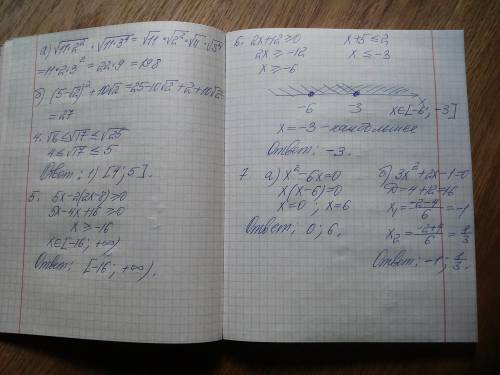 а) √11·2² · √11·3⁴ = √11 · √2² · √11 · √3⁴
= 11·2·3² = 22·9 = 198
б) (5-√2)² + 10√2 = 25-10√2+2+10√2=
= 27
4. √16 ≤ √17 ≤ √25
4 ≤ √17 ≤ 5
Ответ: 1) [4; 5].
5. 5x-2(2x-8)≥0
5x-4x+16≥0
x ≥ -16
x∈[-16; +∞)
Ответ: [-16; +∞).
6. 2x+12≥0
2x ≥ -12
x ≥ -6
x+5 ≤ 2
x ≤ -3
-6 -3 x
x∈[-6; -3]
x=-3 - наибольшее
Ответ: -3.
7 а) x²-6x=0
x(x-6)=0
x=0 ; x=6
Ответ: 0; 6.
б) 3x²+2x-1=0
D=4+12=16
x₁=-2-4/6=-1
x₂=-2+4/6=1/3
Ответ: -1; 1/3.